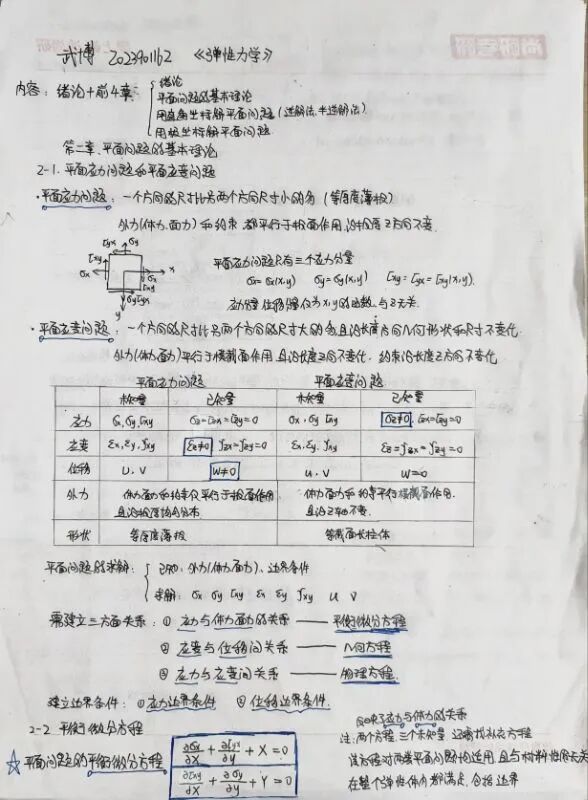 武博 2023901162 《弹性力学》
内容：绪论+前4章
绪论
平面问题的基本理论
用直角坐标解平面问题（逆解法、半逆解法）
用极坐标解平面问题
第二章、平面问题的基本理论
2-1. 平面应力问题和平面应变问题
·平面应力问题：一个方向的尺寸比另两个方向尺寸小的多（等厚度薄板）
外力（体力、面力）和约束都平行于板面作用，沿厚度Z方向不变.
τyx σy
τxy
σx x
σx
τxy
σy τyx
y
平面应力问题只有三个应力分量
σx=σx(x,y) σy=σy(x,y) τxy=τyx=τxy(x,y).
应力分量、位移分量仅为x,y的函数，与Z无关.
·平面应变问题：一个方向的尺寸比另两个方向的尺寸大的多且沿长度方向几何形状和尺寸不变化.
外力（体力、面力）平行于横截面作用且沿长度Z向不变化，约束沿长度Z方向不变化.
平面应力问题 平面应变问题
未知量 已知量 未知量 已知量
应力 σx,σy,τxy σz=τzx=τzy=0 σx,σy τxy σz≠0,τzx=τzy=0
应变 εx,εy,γxy εz≠0 γzx=γzy=0 εx,εy.γxy εz=γzx=γzy=0
位移 u.v w≠0 u.v w=0
外力 体力、面力和约束仅平行于板面作用, 体力、面力和约束平行横截面作用.
且沿板厚均匀分布. 且沿Z轴不变.
形状 等厚度薄板 等截面长柱体
平面问题的求解：已知：外力（体力、面力）、边界条件
求解：σx σy τxy εx εy γxy u v
需建立三方面关系：① 应力与体力面力的关系——平衡微分方程
② 应变与位移间关系——几何方程
③ 应力与应变间关系——物理方程.
建立边界条件：①应力边界条件 ②位移边界条件.
2-2 平衡微分方程
☆平面问题的平衡微分方程
∂σy/∂x+∂τyx/∂y+X=0
∂τxy/∂x+∂σy/∂y+Y=0
应力与体力的关系
注：两个方程、三个未知量
该方程对两类平面问题都适用，且与材料性质无关
在整个弹性体内都满足，包括边界